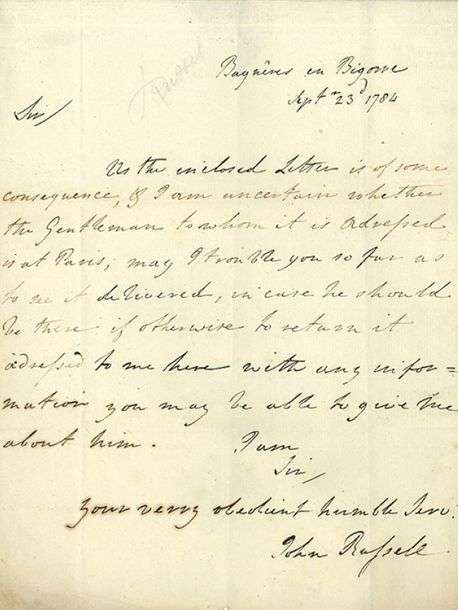 J Russell
Bagnêres en Bigorre
Septr. 23d 1784
Sir/
As the enclosed Letter is of some
consequence, & I am uncertain whether
the Gentleman to whom it is adressed
is at Paris; may I trouble you so far as
to see it delivered, in case he should
be there if otherwise to return it
adressed to me here with any infor=
mation you may be able to give me
about him.
I am
Sir,
your verry obedient humble Serv.
John Russell